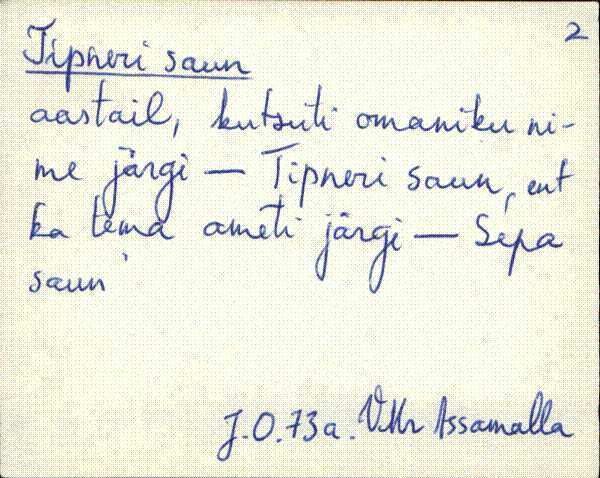 2
Tipneri saun
aastail, kutsuti omaniku ni-
me järgi — Tipneri saun, ent
ka tema ameti järgi — Sepa
saun
J.O. 73a. VMr Assamalla